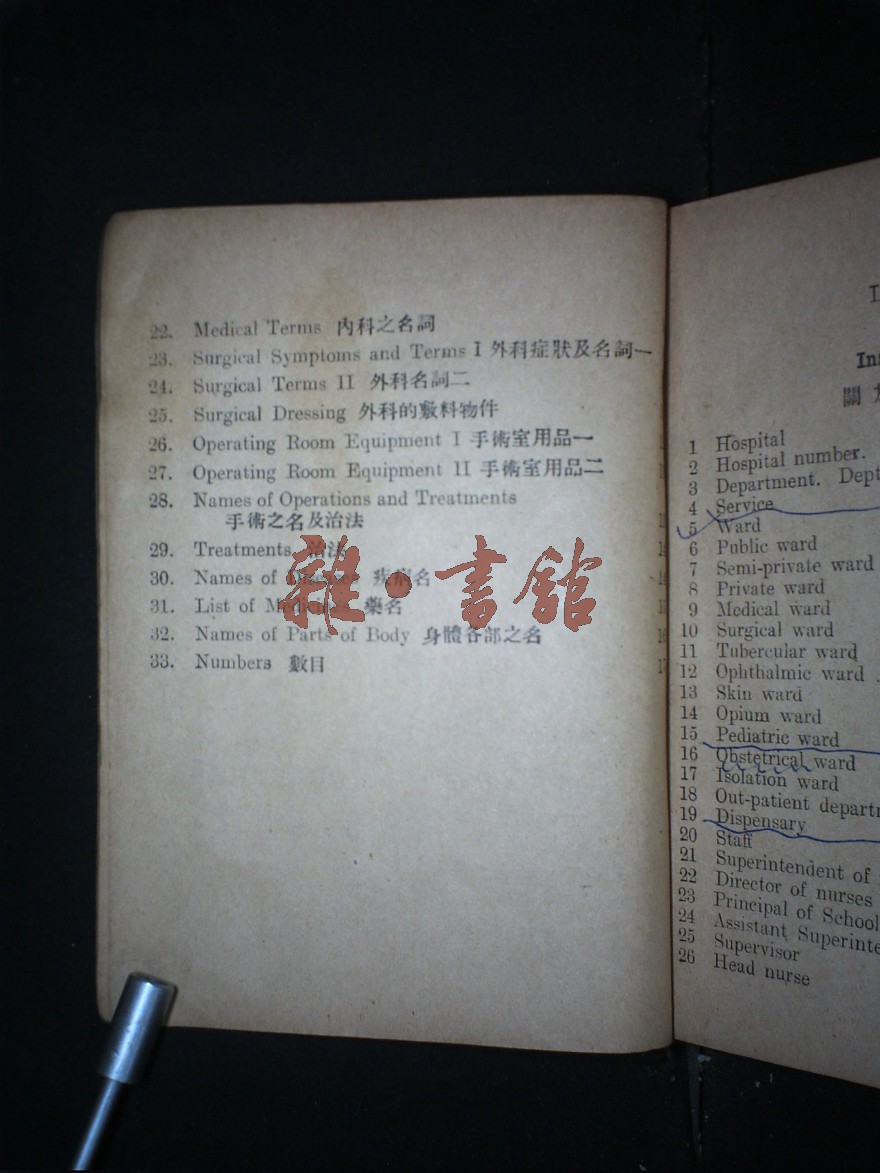 22. Medical Terms 內科之名詞
23. Surgical Symptoms and Terms I 外科症狀及名詞一
24. Surgical Terms II 外科名詞二
25. Surgical Dressing 外科的敷料物件
26. Operating Room Equipment I 手術室用品一
27. Operating Room Equipment II 手術室用品二
28. Names of Operations and Treatments
手術之名及治法
29. Treatments 治法
30. Names of Diseases 疾病名
31. List of Medicines 藥名
32. Names of Parts of Body 身體各部之名
33. Numbers 數目
雜·書館
關
1 Hospital
2 Hospital number.
3 Department. Dept
4 Service
5 Ward
6 Public ward
7 Semi-private ward
8 Private ward
9 Medical ward
10 Surgical ward
11 Tubercular ward
12 Ophthalmic ward
13 Skin ward
14 Opium ward
15 Pediatric ward
16 Obstetrical ward
17 Isolation ward
18 Out-patient departm
19 Dispensary
20 Staff
21 Superintendent of
22 Director of nurses
23 Principal of School
24 Assistant Superinte
25 Supervisor
26 Head nurse